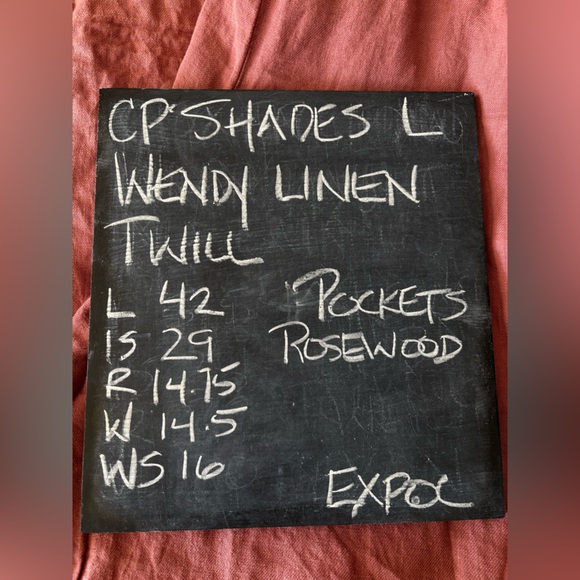 CP SHADES L
WENDY LINEN
TWILL
L 42
IS 29
R 14.75
W 14.5
WS 16
POCKETS
ROSEWOOD
EXPOC